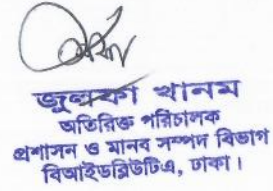 জুলফা খানম
অতিরিক্ত পরিচালক
প্রশাসন ও মানব সম্পদ বিভাগ
বিআইডব্লিউটিএ, ঢাকা।